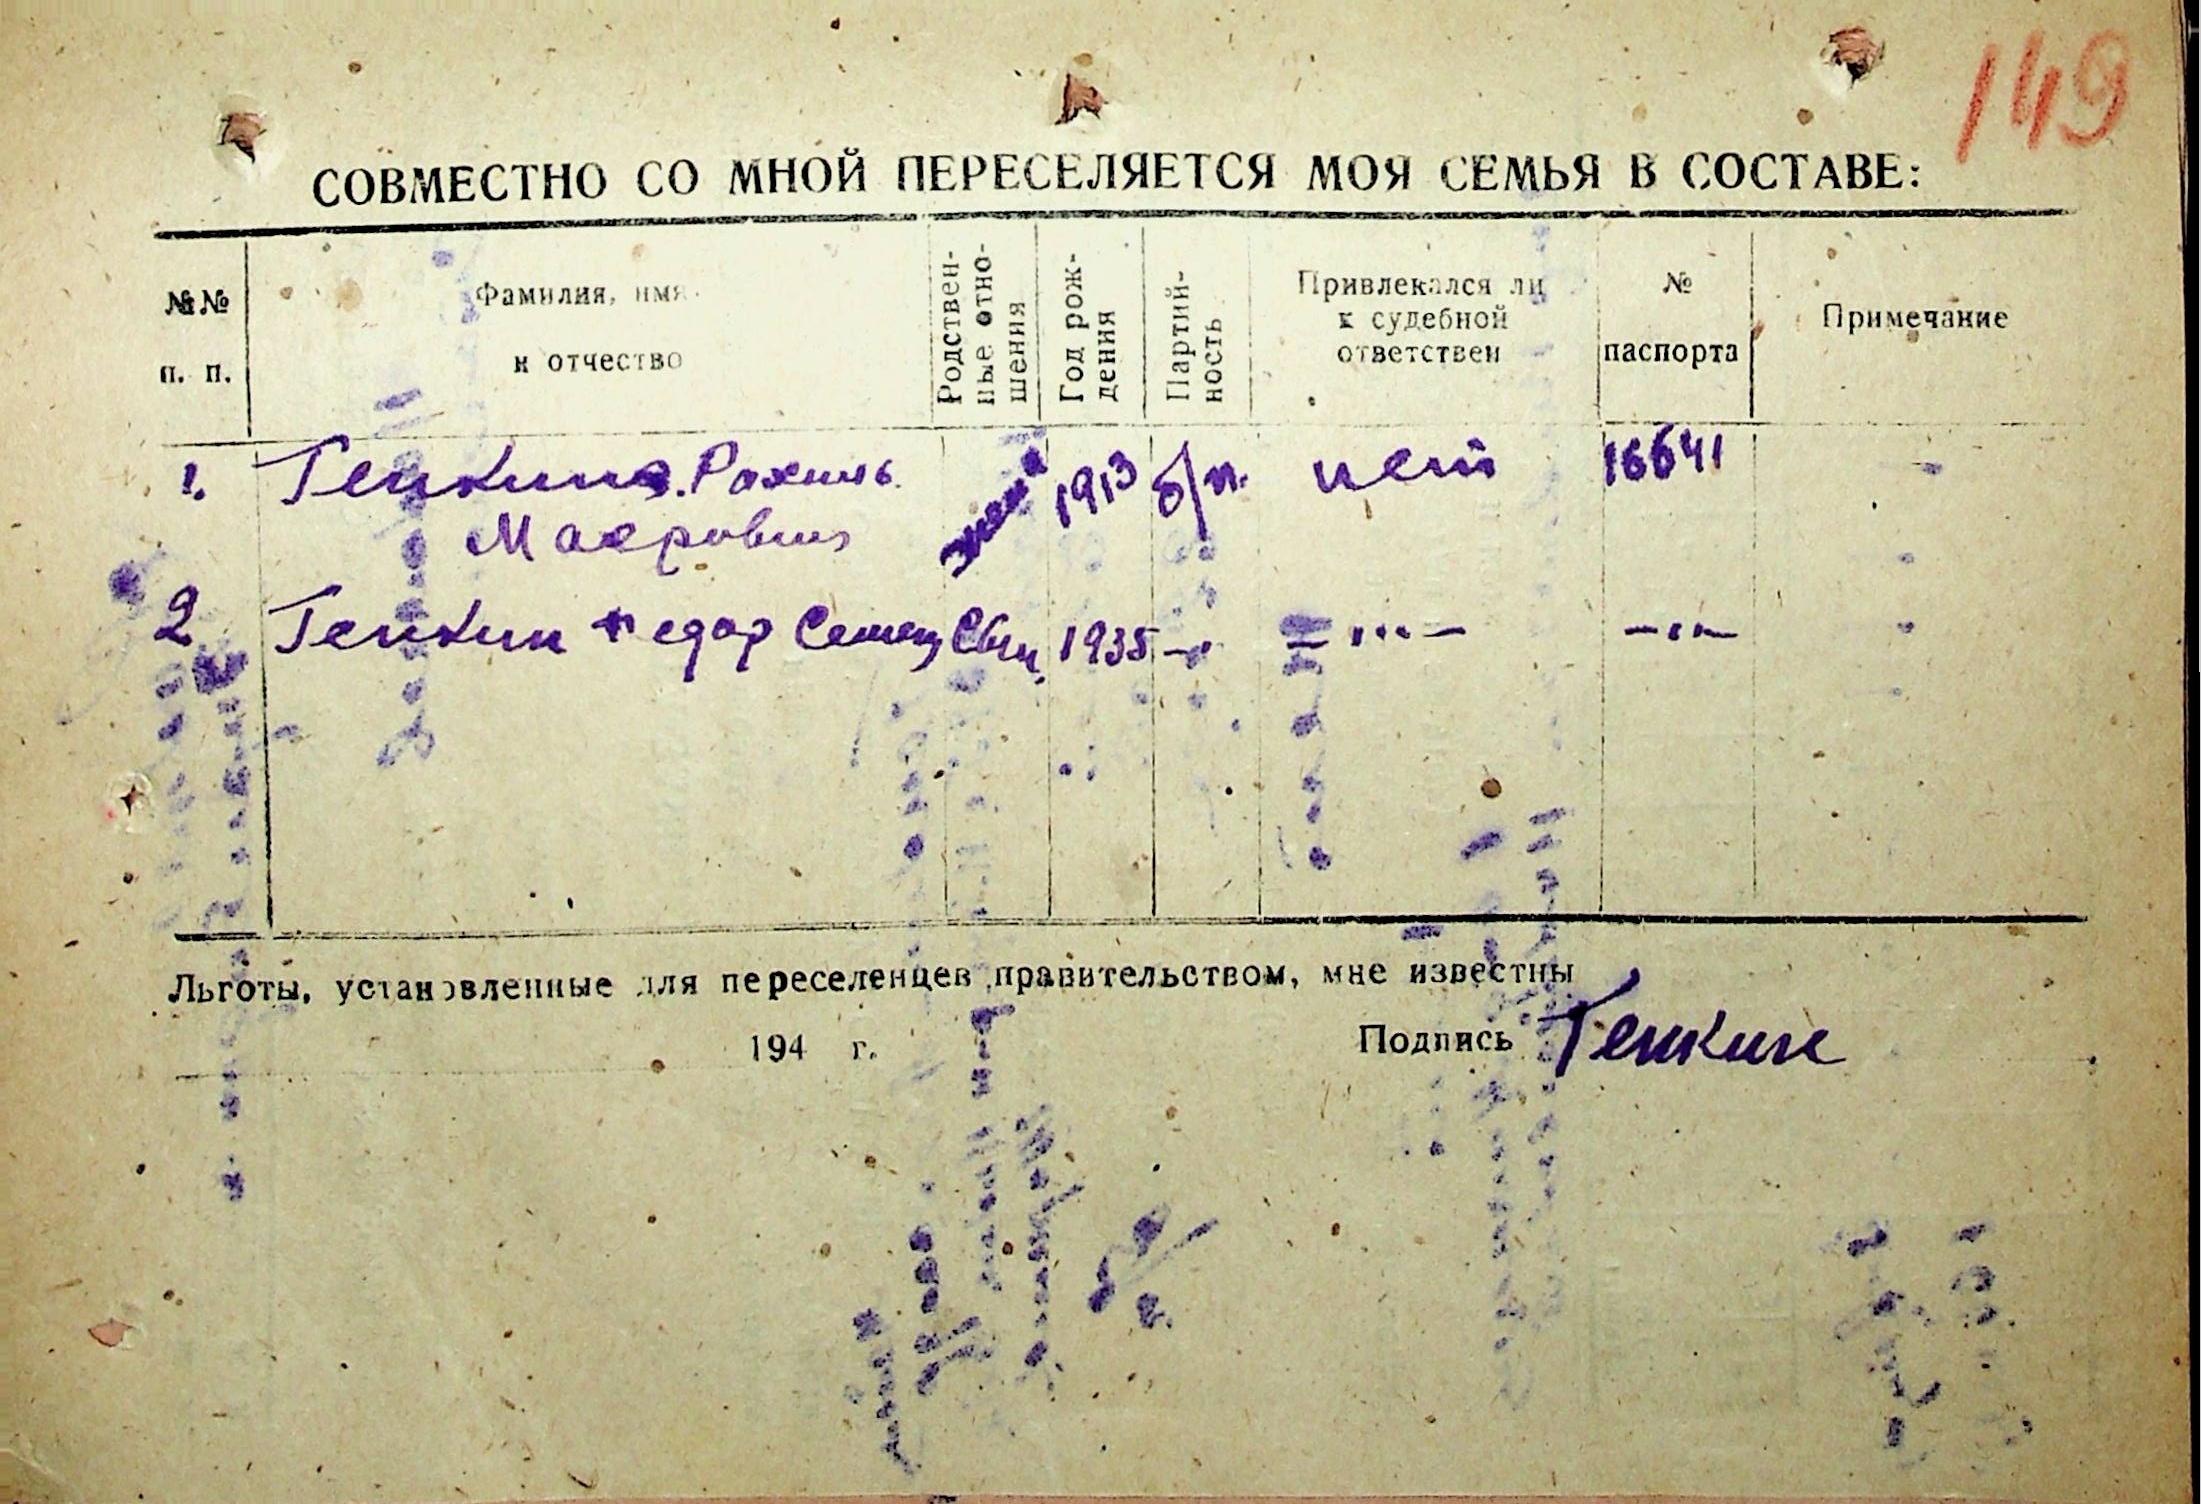 149
СОВМЕСТНО СО МНОЙ ПЕРЕСЕЛЯЕТСЯ МОЯ СЕМЬЯ В СОСТАВЕ:
№№ п. п. Фамилия, имя и отчество Родственные отношения Год рождения Партийность Привлекался ли к судебной ответствен № паспорта Примечание
1. Генкина Рахиль 1913 б/п. нет 16641
Маеровна жена
2 Генкин Федор Семен Сын 1935 — — · · · — — · · —
Льготы, установленные для переселенцев правительством, мне известны
194 г. Подпись Генкин